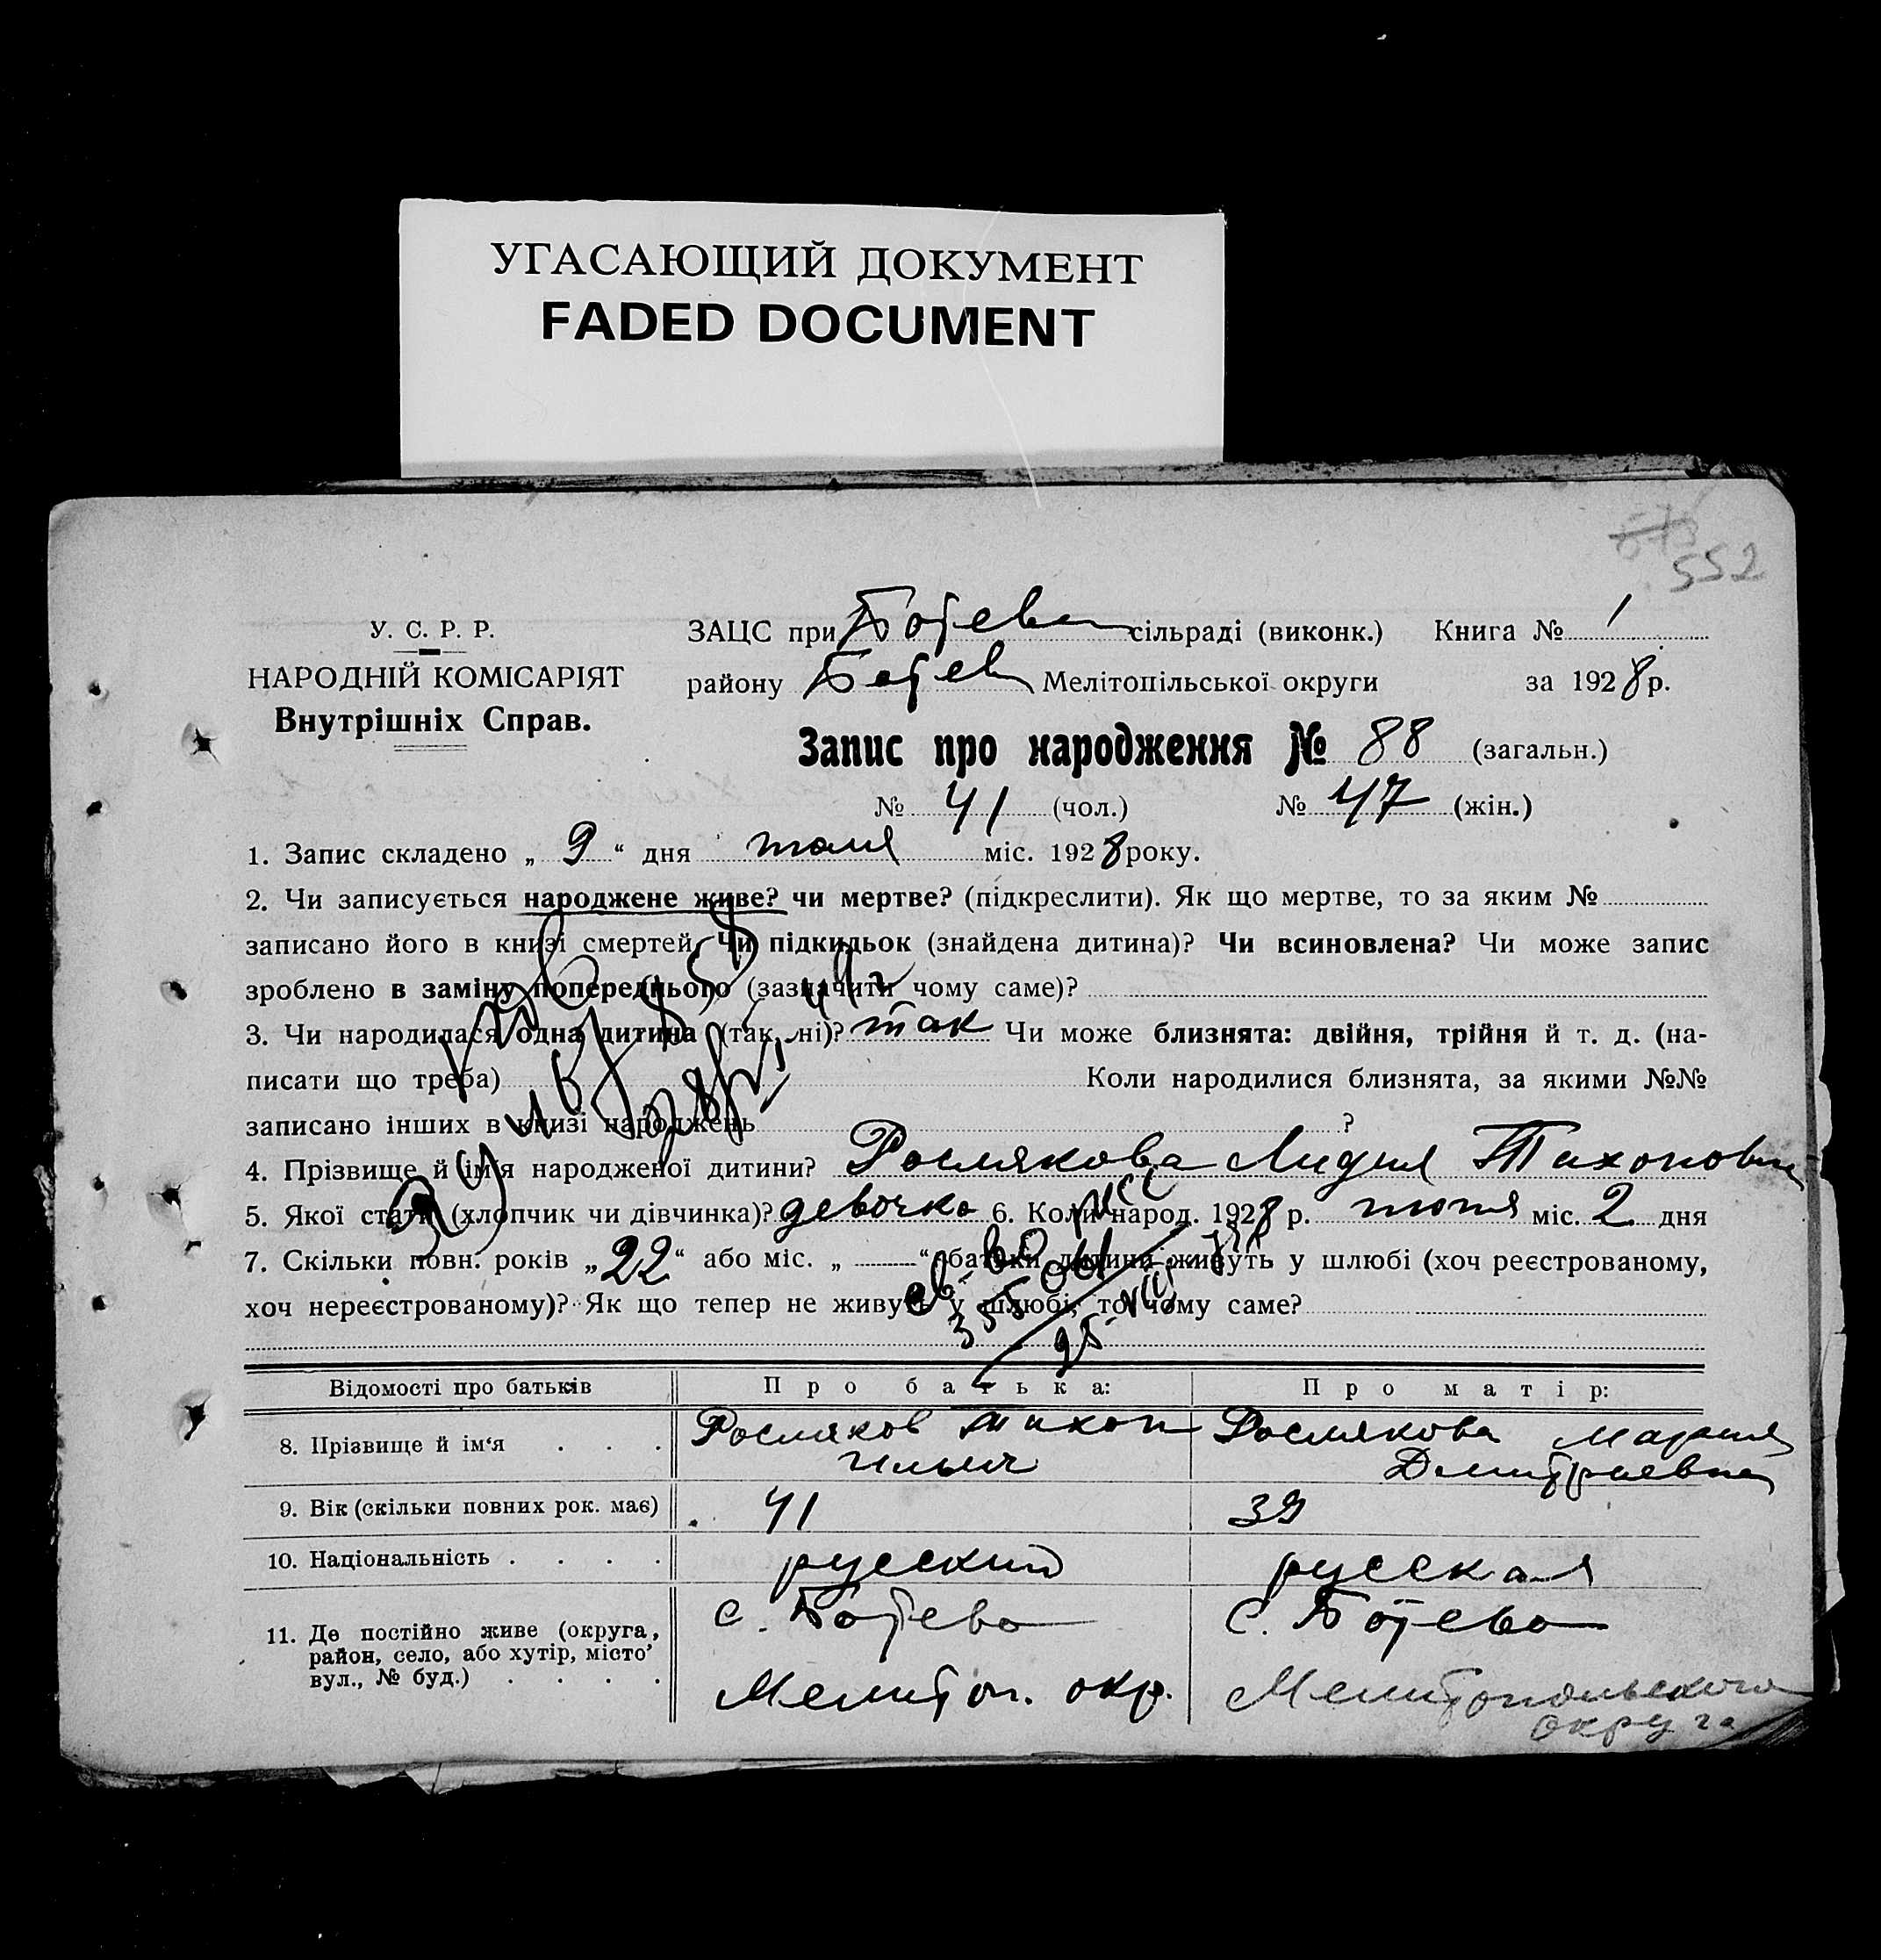 УГАСАЮЩИЙ ДОКУМЕНТ
FADED DOCUMENT
552
У. С. Р. Р.
НАРОДНІЙ КОМІСАРІЯТ
Внутрішніх Справ.
ЗАЦС при Ботево сільраді (виконк.) Книга № 1
району Ботев Мелітопільської округи за 1928 р.
Запис про народження № 88 (загальн.)
№ 41 (чол.) № 47 (жін.)
1. Запис складено „ 9 “ дня міс. 1928 року.
2. Чи записується народжене живе? чи мертве? (підкреслити). Як що мертве, то за яким №
записано його в книзі смертей. Чи підкидьок (знайдена дитина)? Чи всиновлена? Чи може запис
зроблено в заміну попереднього (зазначити чому саме)?
3. Чи народилася одна дитина (так, ні)? так Чи може близнята: двійня, трійня й т. д. (на-
писати що треба) Коли народилися близнята, за якими №№
записано інших в книзі народжень ?
4. Прізвище й ім'я народженої дитини? Рослякова Лидия Тихоновна
5. Якої статі (хлопчик чи дівчинка)? девочка 6. Коли народ. 1928 р. міс. 2 дня
7. Скільки повн. років „22“ або міс. „ “ батьки дитини живуть у шлюбі (хоч реєстрованому,
хоч нереєстрованому)? Як що тепер не живуть у шлюбі, то чому саме?
Відомості про батьків Про батька: Про матір:
8. Прізвище й ім‘я . . . Росляков Тихон Ильич Рослякова Мария Дмитриевна
9. Вік (скільки повних рок. має) 41 39
10. Національність . . . . русский русская
11. Де постійно живе (округа, район, село, або хутір, місто, вул., № буд.) . . . . с. Ботево Мелитоп. окр. с. Ботево Мелитопольского округа